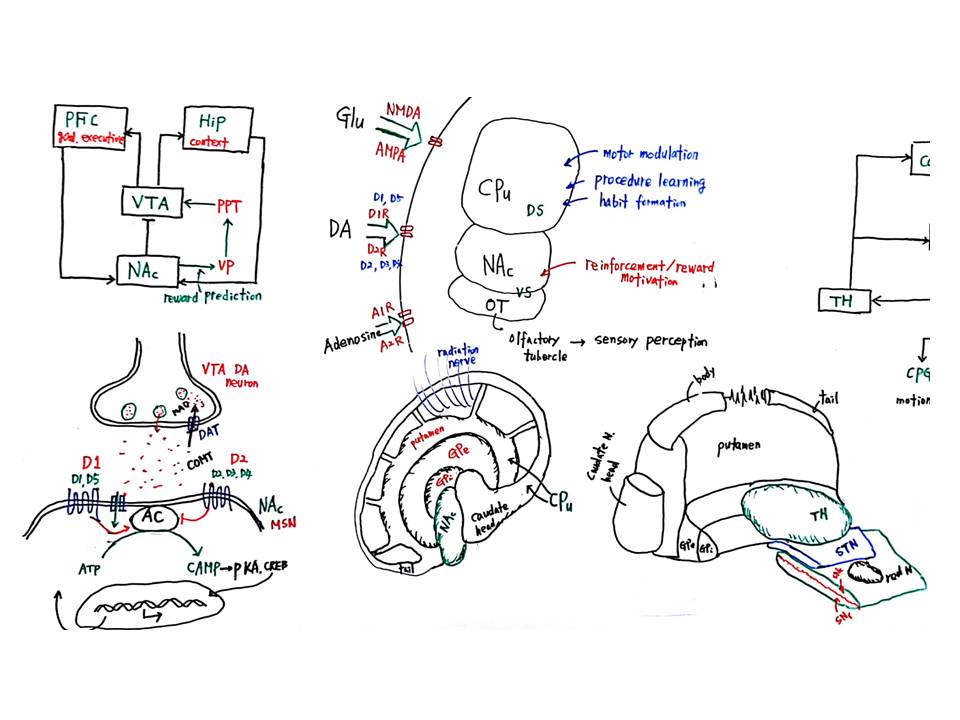 PFC
goal. executive
Hip
context
VTA
PPT
NAc
VP
reward prediction
Glu
NMDA
AMPA
D1, D5
DA
D1R
D2R
D2, D3, D4
A1R
Adenosine
A2R
CPu
DS
NAc
VS
OT
motor modulation
procedure learning
habit formation
reinforcement/reward
motivation
olfactory → sensory perception
tubercle
TH
CPG
motion
VTA DA
neuron
MAO
DAT
COMT
D1
D1, D5
D2
D2, D3, D4
AC
NAc
MSN
ATP
CAMP → PKA. CREB
radiation
nerve
putamen
GPe
GPi
NAc
caudate
head
CPu
tail
body
tail
putamen
caudate N.
head
TH
GPe
GPi
STN
red N